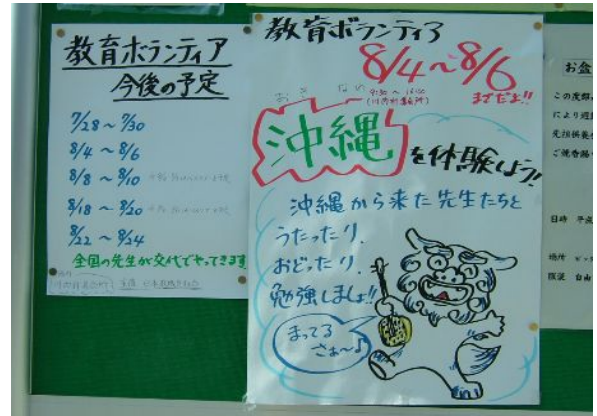 教育ボランティア
今後の予定
7/28～7/30
8/4～8/6
8/8～8/10
8/18～8/20
8/22～8/24
全国の先生が交代でやってきます
教育ボランティア
8/4～8/6
までだよ!!
9:30～16:00
おき なわ
沖縄
を体験しよう!
沖縄から来た先生たちと
うたったり、
おどったり、
勉強しましょ!!
まってる
さぁ～♪
お盆
この度
により
先祖供養
ご焼香
日時
場所
服装 自由